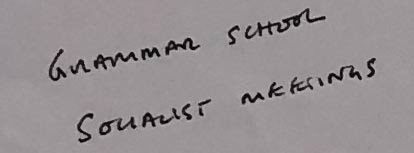 GRAMMAR SCHOOL
SOCIALIST MEETINGS